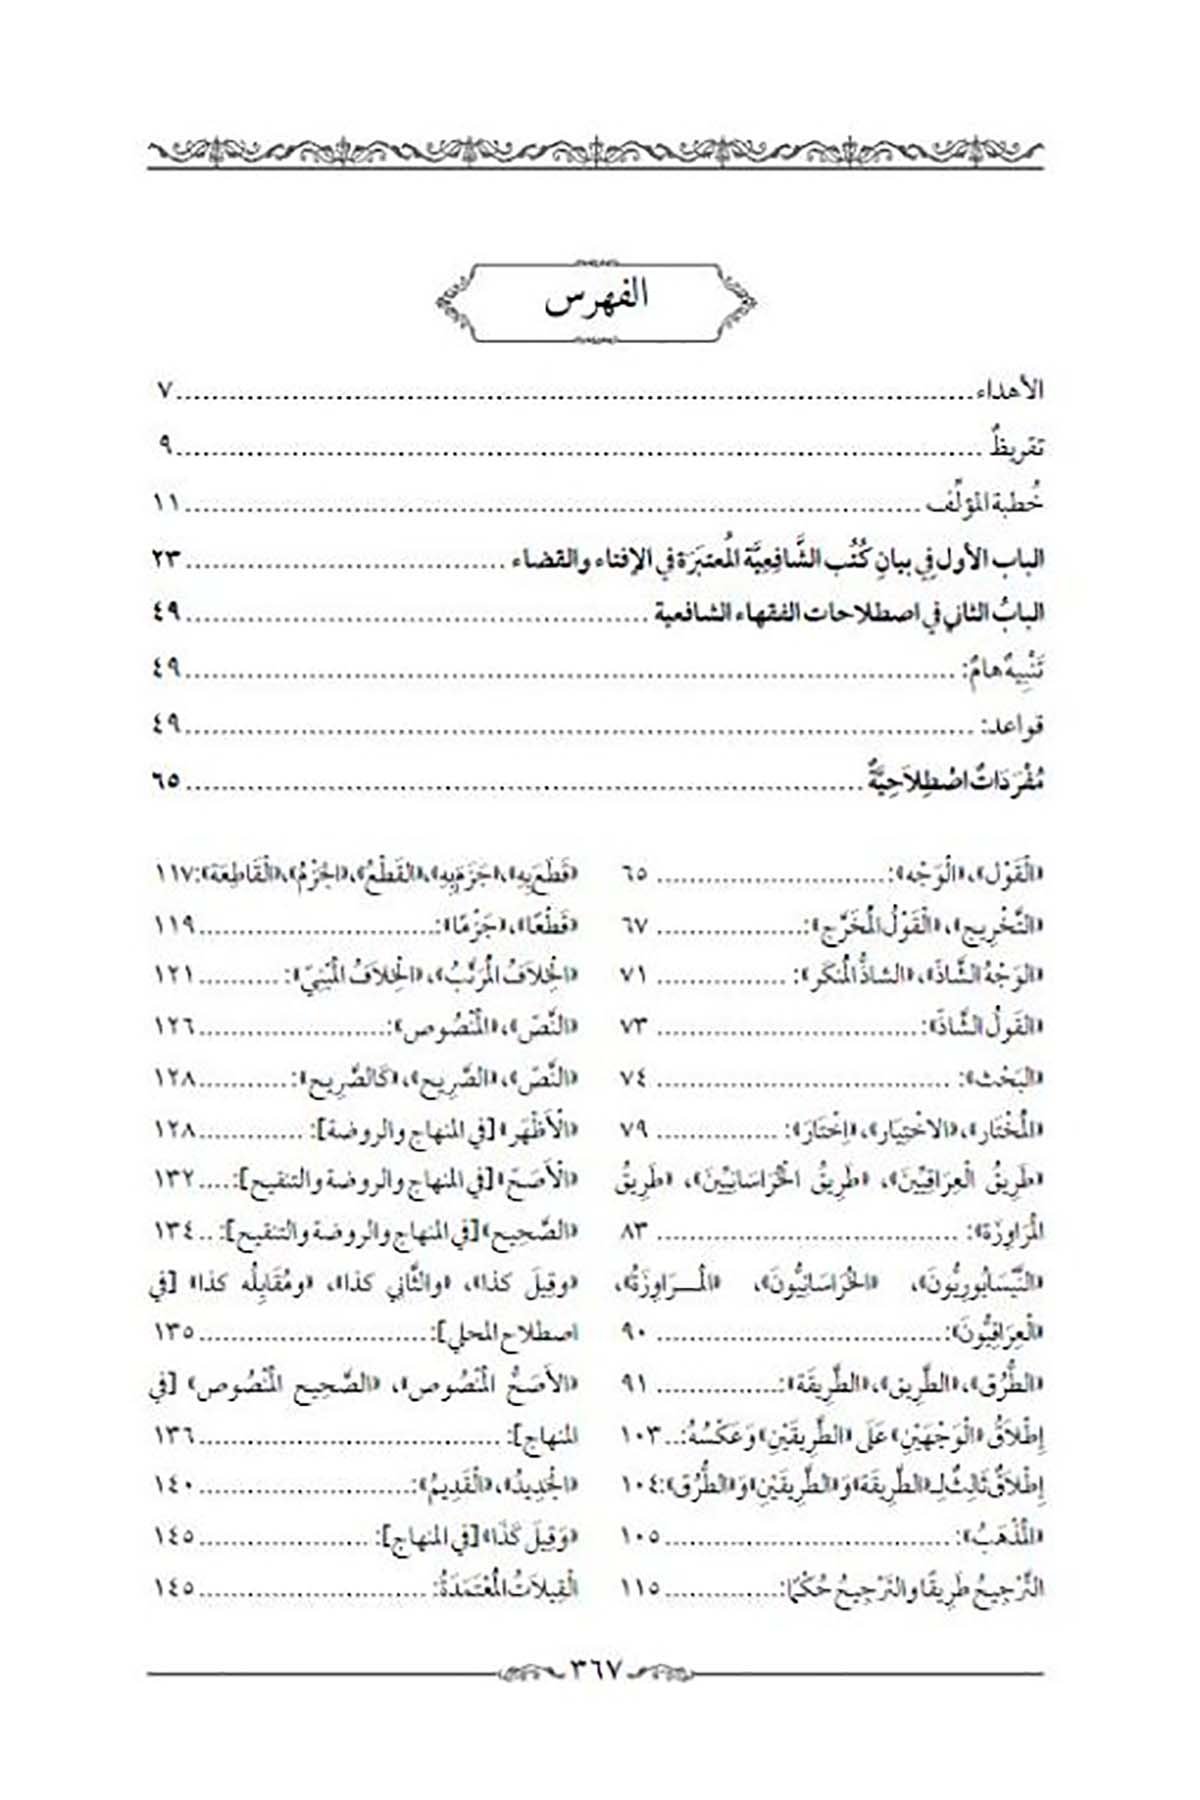 الفهرس
الأهداء ........ ٧
تقريظٌ ........ ٩
خُطبة المؤلِّف ........ ١١
الباب الأول فِي بيانِ كُتُب الشَّافِعِيَّة المُعتبَرَة في الإفتاء والقضاء ........ ٢٣
البابُ الثاني في اصطلاحات الفقهاء الشافعية ........ ٤٩
تَنْبِيهٌ هامٌ: ........ ٤٩
قواعد: ........ ٤٩
مُفْرَدَاتٌ اصْطِلاَحِيَّةٌ ........ ٦٥
«الْقَوْل»، «الْوَجْه»: ........ ٦٥
«التَّخْرِيج»، «الْقَوْلُ المُخَرَّج»: ........ ٦٧
«الوَجْهُ الشَّاذّ»، «الشاذُّ المُنكَر»: ........ ٧١
«القَولُ الشَّاذّ»: ........ ٧٣
«البَحْث»: ........ ٧٤
«المُخْتَار»، «الاخْتِيَار»، «اِخْتَارَ»: ........ ٧٩
«طَرِيقُ الْعِرَاقِيِّينَ»، «طَرِيقُ الْخُرَاسَانِيِّينَ»، «طَرِيقُ
المَرَاوِزَة»: ........ ٨٣
«النَّيْسَابُورِيُّونَ»، «الخُرَاسَانِيُّونَ»، «المَـــرَاوِزَةُ»،
«الْعِرَاقِيُّونَ»: ........ ٩٠
«الطُّرُق»، «الطَّرِيق»، «الطَّرِيقَة»: ........ ٩١
إِطْلَاقُ «الْوَجْهَيْنِ» عَلَى «الطَّرِيقَيْنِ» وَعَكْسُهُ: .. ١٠٣
إِطْلَاقٌ ثَالِثٌ لِـ«الطَّرِيقَة» وَ«الطَّرِيقَيْنِ» وَ«الطُّرُق»: ١٠٤
«المَذْهَبُ»: ........ ١٠٥
التَّرْجِيحُ طَرِيقًا والتَرْجِيحُ حُكْمًا: ........ ١١٥
«قَطَعَ بِهِ»، «جَزَمَ بِهِ»، «القَطْعُ»، «الجَزْمُ»، «الْقَاطِعَة»: ١١٧
«قَطْعًا»، «جَزْمًا»: ........ ١١٩
«الْخِلَافُ المُرَتَّبُ»، «الْخِلَافُ المَبْنِيّ»: ........ ١٢١
«النَّصّ»، «المَنْصُوص»: ........ ١٢٦
«النَّصّ»، «الصَّرِيح»، «كَالصَّرِيح»: ........ ١٢٨
«الْأَظْهَر» [في المنهاج والروضة]: ........ ١٢٨
«الْأَصَحّ» [في المنهاج والروضة والتنقيح]: .... ١٣٢
«الصَّحِيح» [في المنهاج والروضة والتنقيح]: .. ١٣٤
«وقِيلَ كذا»، «والثَّانِي كذا»، «ومُقَابِلُه كذا» [في
اصطلاح المحلي]: ........ ١٣٥
«الأَصَحُّ المَنْصُوص»، «الصَّحِيح المَنْصُوص» [في
المنهاج]: ........ ١٣٦
«الْجَدِيدُ»، «الْقَدِيمُ»: ........ ١٤٠
«وَقِيلَ كَذَا» [في المنهاج]: ........ ١٤٥
الْقِيلَاتُ المُعْتَمَدَةُ: ........ ١٤٥
٣٦٧